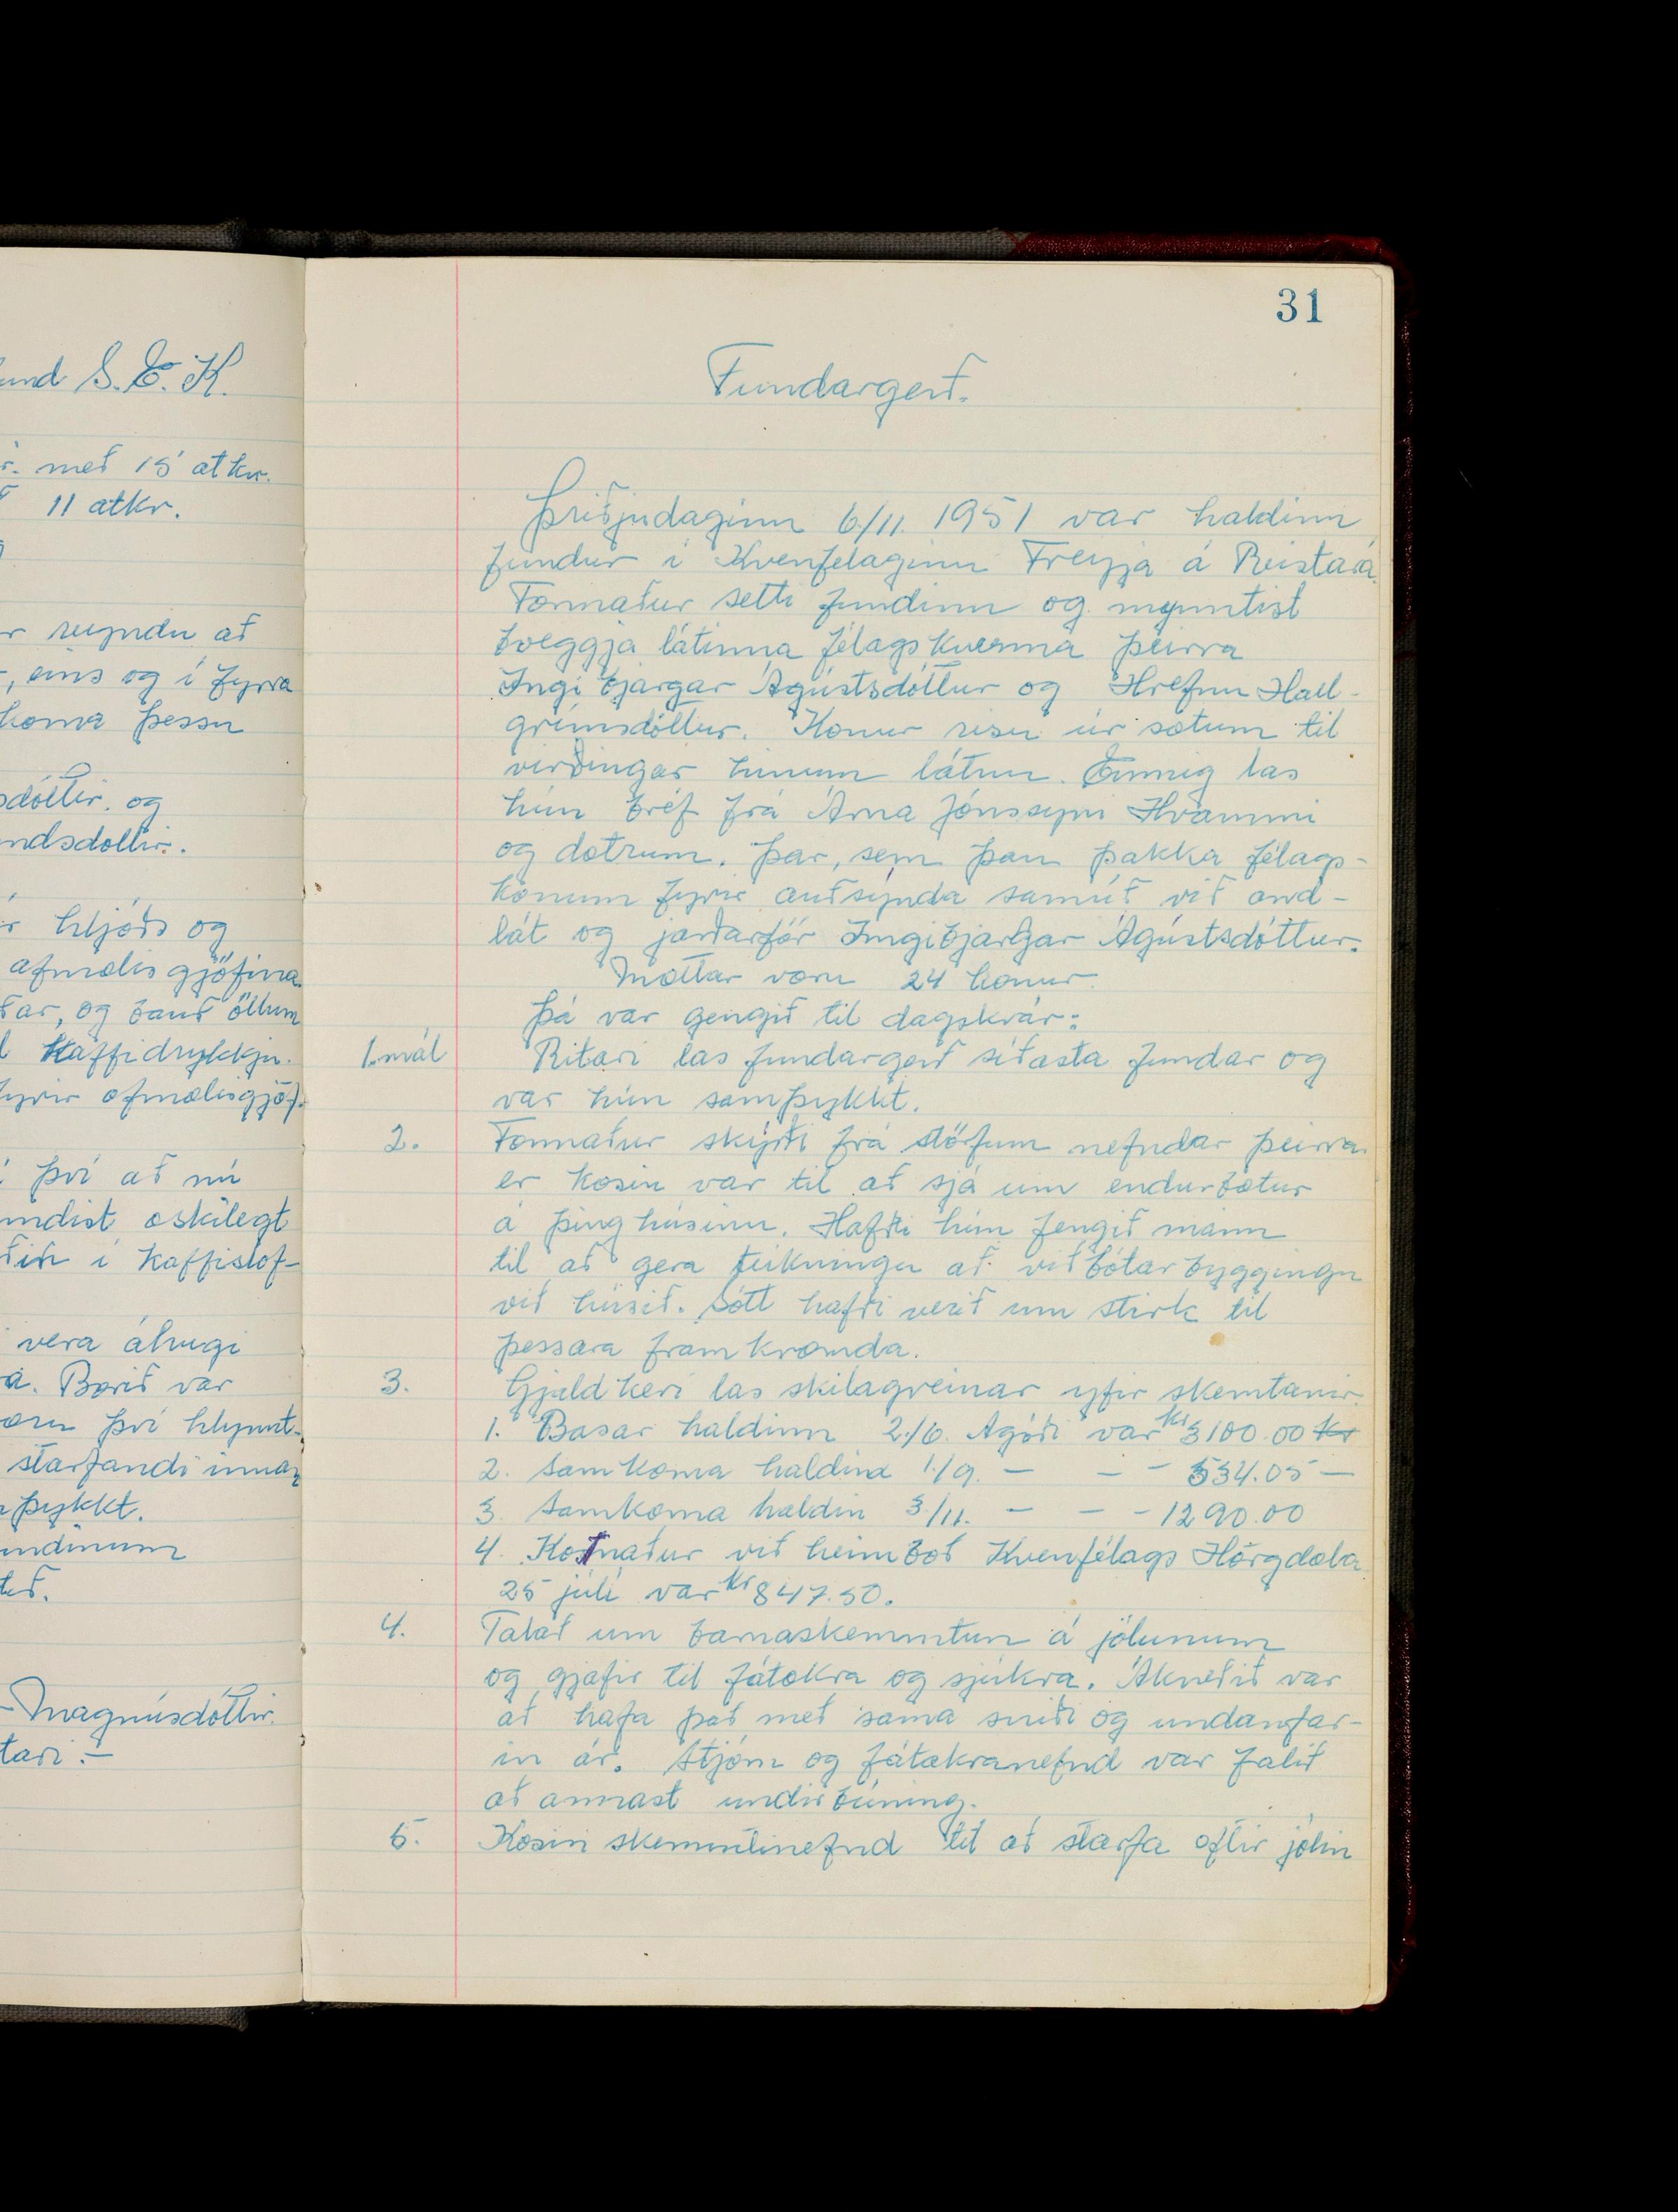 und S.E.K.
með 15 atkv.
11 atkv.
reyndu að
, eins og í fyrra
koma þessu
sdóttir. og
ndsdóttir.
hljóðs og
afmælisgjöfina.
ar, og bauð öllum
Kaffidrykkju.
fyrir afmælisgjöf.
því að nú
ndist æskilegt
i Kaffistof-
vera áhugi
á. Borið var
því hlynnt-
starfandi innan
þykkt.
undinum
Magnúsdóttir.
tari.-
31
Fundargerð.
Þriðjudaginn 6/11. 1951 var haldinn
fundur i Kvenfelaginu Freyja á Reistará.
Formaður setti fundinn og mynntist
tveggja látinna félagskvenna þeirra
Ingibjargar Ágústsdóttur og Hrefnu Hall-
grímsdóttur. Konur risu úr sætum til
virðingar hinum látnu. Einnig las
hún bréf frá Árna Jónssyni Hvammi
og dætrum. Þar, sem þau þakka félags-
konum fyrir auðsýnda samúð við and-
lát og jarðarför Ingibjargar Ágústsdóttur.
Mættar voru 24 konur.
Þá var gengið til dagskrár:
1.mál Ritari las fundargerð síðasta fundar og
var hún samþykkt.
2. Formaður skýrði frá störfum nefndar þeirra
er kosin var til að sjá um endurbætur
á þinghúsinu. Hafði hún fengið mann
til að gera teikningu að viðbótarbyggingu
við húsið. Sótt hafði verið um stirk til
þessara framkvæmda.
3. Gjaldkeri las skilagreinar yfir skemtanir.
1. Basar haldinn 2/6. Ágóði var kr 3100.00 Kr
2. Samkoma haldin 1/9. — — - 534.05 —
3. Samkoma haldin 3/11. — — - 1290.00
4. Kostnaður við heimboð Kvenfélags Hörgdæla
25 júlí var kr 847.50.
4. Talað um barnaskemmtun á jólunum
og gjafir til fátækra og sjúkra. Ákveðið var
að hafa það með sama sniði og undanfar-
in ár. Stjórn og fátækranefnd var falið
að annast undirbúning.
5. Kosin skemmtinefnd til að starfa eftir jólin